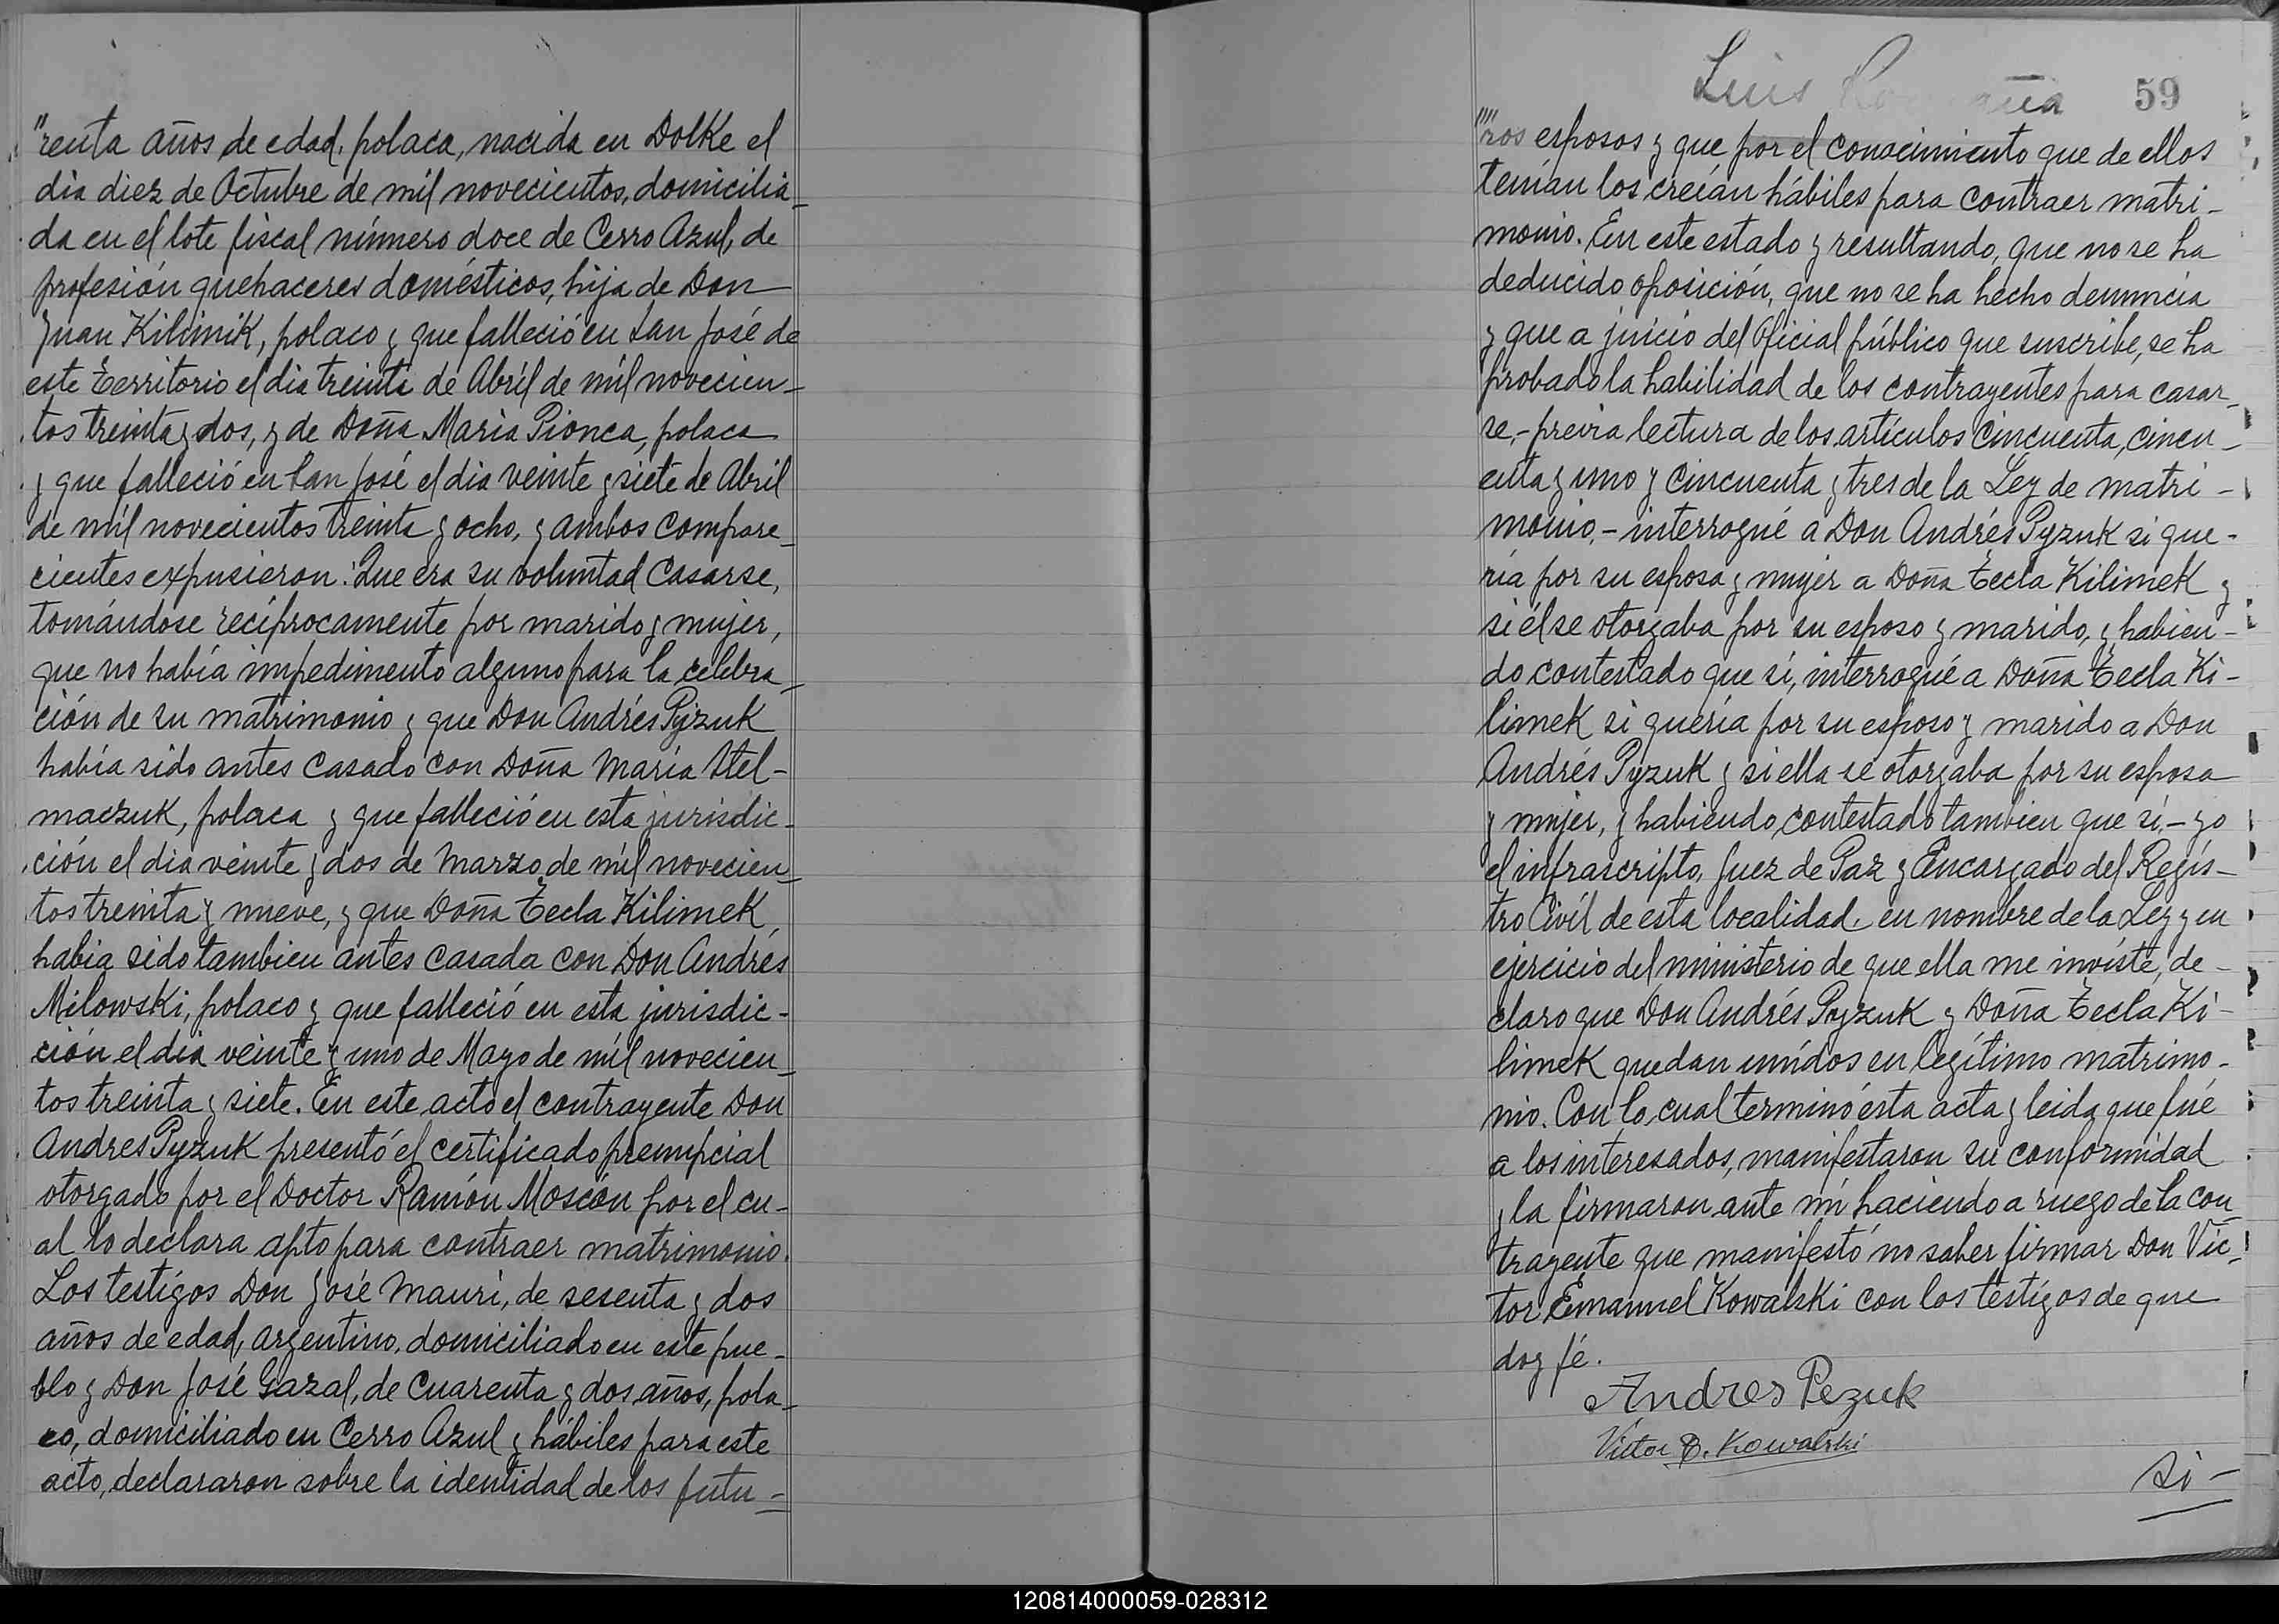 "renta años de edad, polaca, nacida en Dolke el
dia diez de Octubre de mil novecientos, domicilia-
da en el lote fiscal número doce de Cerro Azul, de
profesión quehaceres domésticos, hija de Don
Juan Kilimik, polaco y que falleció en San José de
este Territorio el dia treinta de Abril de mil novecien-
tos treinta y dos, y de Doña Maria Pionca, polaca
y que falleció en San José el dia veinte y siete de Abril
de mil novecientos treinta y ocho, y ambos compare-
cientes expusieron: Que era su voluntad casarse,
tomándose recíprocamente por marido y mujer,
que no había impedimento alguno para la celebra-
ción de su matrimonio y que Don Andrés Pyzuk
había sido antes casado con Doña María Stel-
maczuk, polaca y que falleció en esta jurisdic-
ción el dia veinte y dos de Marzo de mil novecien-
tos treinta y nueve, y que Doña Tecla Kilimek
habia sido tambien antes casada con Don Andrés
Milowski, polaco y que falleció en esta jurisdic-
ción el dia veinte y uno de Mayo de mil novecien-
tos treinta y siete. En este acto el contrayente Don
Andres Pyzuk presentó el certificado prenupcial
otorgado por el Doctor Ramón Moscón por el cu-
al lo declara apto para contraer matrimonio.
Los testigos Don José Mauri, de sesenta y dos
años de edad, argentino, domiciliado en este pue-
blo y Don José Gazal, de cuarenta y dos años, pola-
co, domiciliado en Cerro Azul y hábiles para este
acto, declararon sobre la identidad de los futu-
Luis
59
""ros esposos y que por el conocimiento que de ellos
tenían los creían hábiles para contraer matri-
monio. En este estado y resultando, que no se ha
deducido oposición, que no se ha hecho denuncia
y que a juicio del Oficial público que suscribe, se ha
probado la habilidad de los contrayentes para casar-
se,- previa lectura de los artículos cincuenta, cincu-
enta y uno y cincuenta y tres de la Ley de matri-
monio,- interrogué a Don Andrés Pyzuk si que-
ría por su esposa y mujer a Doña Tecla Kilimek y
si él se otorgaba por su esposo y marido, y habien-
do contestado que sí, interrogué a Doña Tecla Ki-
limek si quería por su esposo y marido a Don
Andrés Pyzuk y si ella se otorgaba por su esposa
y mujer, y habiendo contestado tambien que sí,- yo
el infrascripto, Juez de Paz y Encargado del Regis-
tro Civíl de esta localidad, en nombre de la Ley y en
ejercicio del ministerio de que ella me inviste, de-
claro que Don Andrés Pyzuk y Doña Tecla Ki-
limek quedan unidos en legítimo matrimo-
nio. Con lo cual terminó ésta acta y leida que fué
a los interesados, manifestaron su conformidad
y la firmaron ante mí haciendo a ruego de la con-
trayente que manifestó no saber firmar Don Víc-
tor Emanuel Kowalski con los testigos de que
doy fé.
Andres Pezuk
Victor E. Kowalski
Si-
120814000059-028312